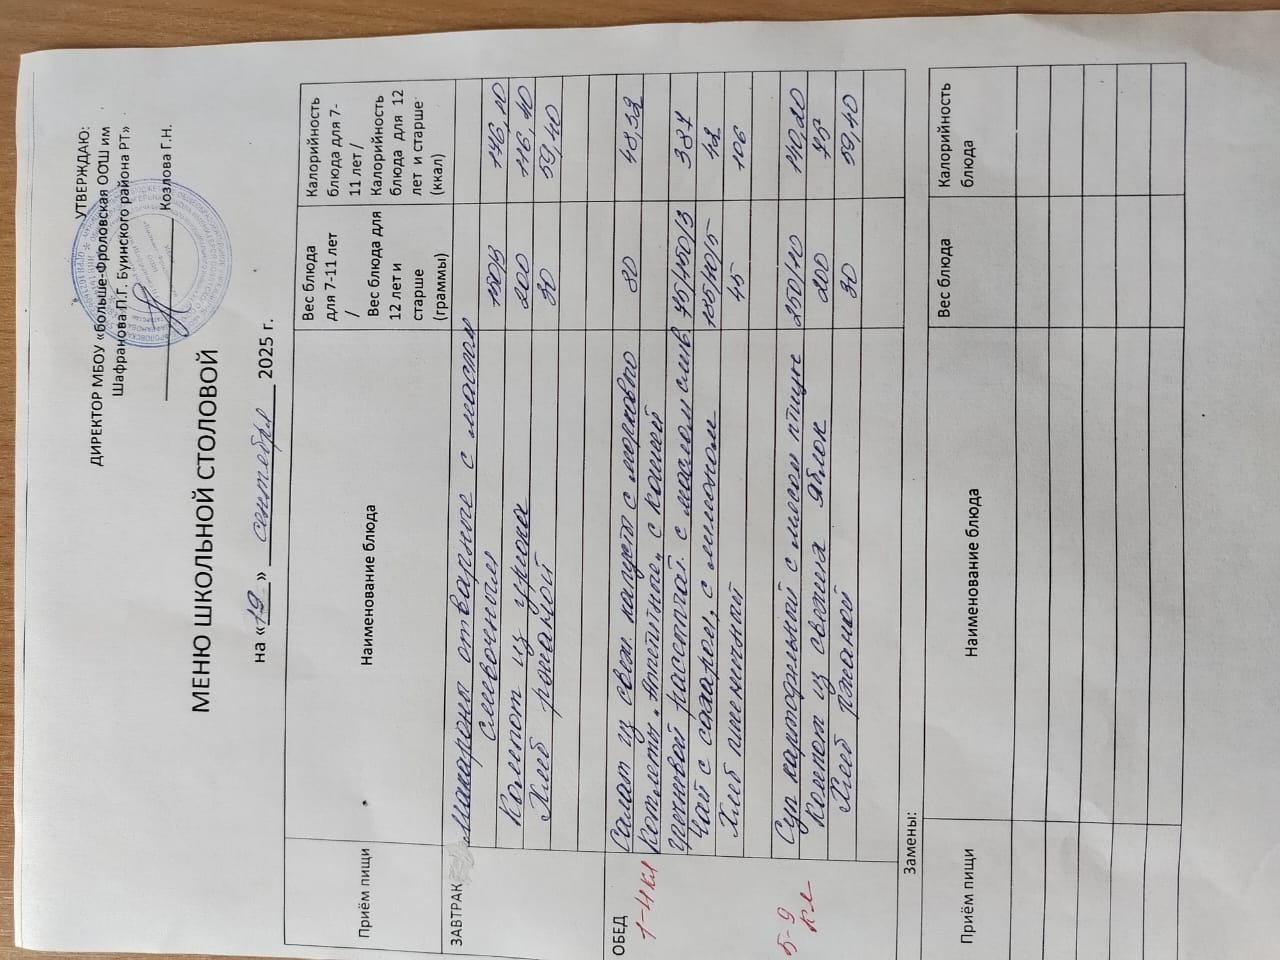 УТВЕРЖДАЮ:
ДИРЕКТОР МБОУ «Больше-Фроловская ООШ им
Шафранова П.Г. Буинского района РТ»
Козлова Г.Н.
МЕНЮ ШКОЛЬНОЙ СТОЛОВОЙ
на «19» сентября 2025 г.
Приём пищи Наименование блюда Вес блюда для 7-11 лет / Вес блюда для 12 лет и старше (граммы) Калорийность блюда для 7-11 лет / Калорийность блюда для 12 лет и старше (ккал)
ЗАВТРАК Макароны отварные с маслом
сливочным 150/3 176,10
Компот из урюка 200 116,40
Хлеб ржаной 30 59,40
ОБЕД Салат из свеж. капуст с морковью 80 48,32
1-4 кл Котлеты "Аппетитные" с кашей
гречневой рассыпчат. с маслом слив. 75/150/3 387
Чай с сахаром, с лимоном 185/10/5 42
Хлеб пшеничный 45 106
5-9 кл Суп картофельный с мясом птицы 250/10 140,20
Компот из свежих яблок 200 75
Хлеб ржаной 30 59,40
Замены:
Приём пищи Наименование блюда Вес блюда Калорийность блюда